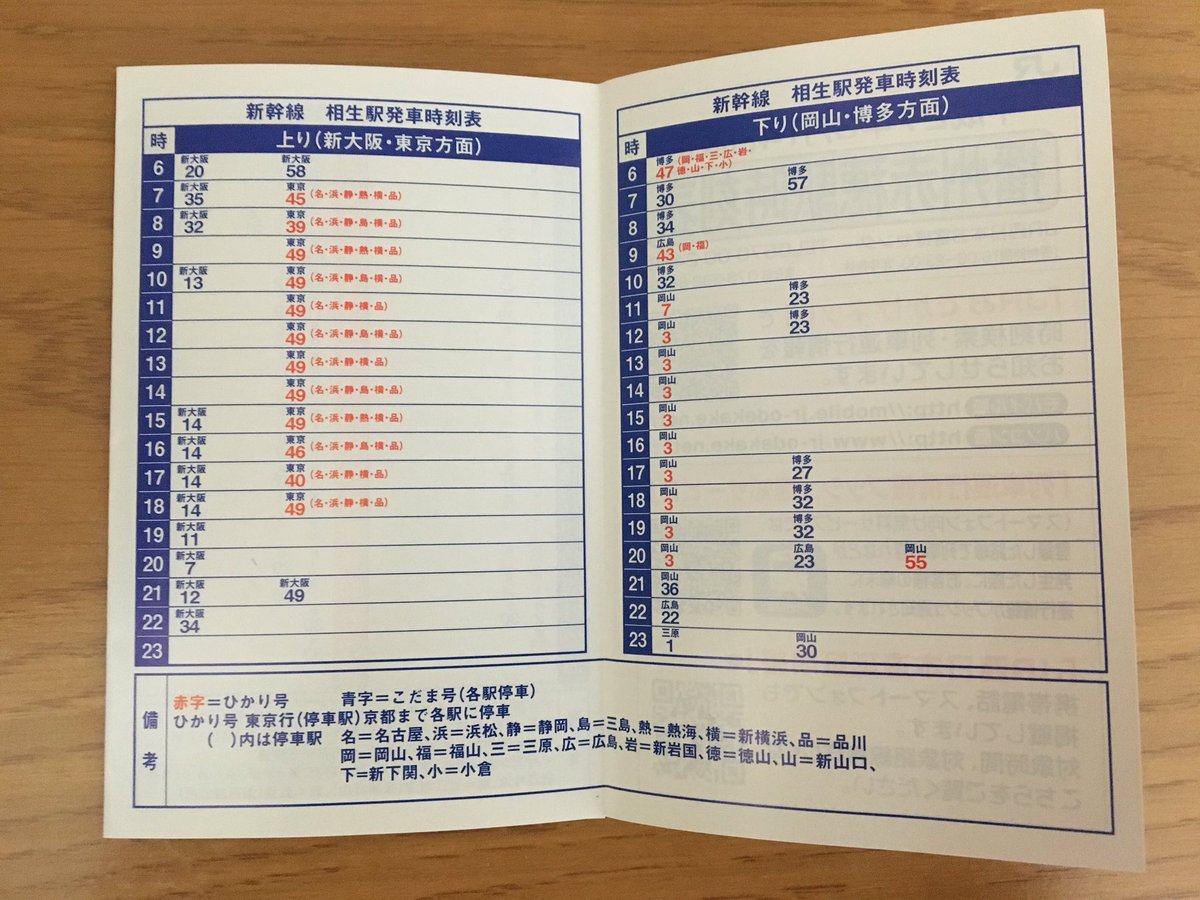 新幹線 相生駅発車時刻表
時 上り(新大阪・東京方面)
6 新大阪 20 新大阪 58
7 新大阪 35 東京 45 (名・浜・静・熱・横・品)
8 新大阪 32 東京 39 (名・浜・静・島・横・品)
9 東京 49 (名・浜・静・熱・横・品)
10 新大阪 13 東京 49 (名・浜・静・島・横・品)
11 東京 49 (名・浜・静・横・品)
12 東京 49 (名・浜・静・島・横・品)
13 東京 49 (名・浜・静・横・品)
14 東京 49 (名・浜・静・島・横・品)
15 新大阪 14 東京 49 (名・浜・静・熱・横・品)
16 新大阪 14 東京 46 (名・浜・静・島・横・品)
17 新大阪 14 東京 40 (名・浜・静・横・品)
18 新大阪 14 東京 49 (名・浜・静・横・品)
19 新大阪 11
20 新大阪 7
21 新大阪 12 新大阪 49
22 新大阪 34
23
新幹線 相生駅発車時刻表
時 下り(岡山・博多方面)
6 博多 47 (岡・福・三・広・岩・徳・山・下・小) 博多 57
7 博多 30
8 博多 34
9 広島 43 (岡・福)
10 博多 32
11 岡山 7 博多 23
12 岡山 3 博多 23
13 岡山 3
14 岡山 3
15 岡山 3
16 岡山 3
17 岡山 3 博多 27
18 岡山 3 博多 32
19 岡山 3 博多 32
20 岡山 3 広島 23 岡山 55
21 岡山 36
22 広島 22
23 三原 1 岡山 30
備考
赤字=ひかり号 青字=こだま号(各駅停車)
ひかり号 東京行(停車駅)京都まで各駅に停車
( )内は停車駅 名=名古屋、浜=浜松、静=静岡、島=三島、熱=熱海、横=新横浜、品=品川
岡=岡山、福=福山、三=三原、広=広島、岩=新岩国、徳=徳山、山=新山口、
下=新下関、小=小倉